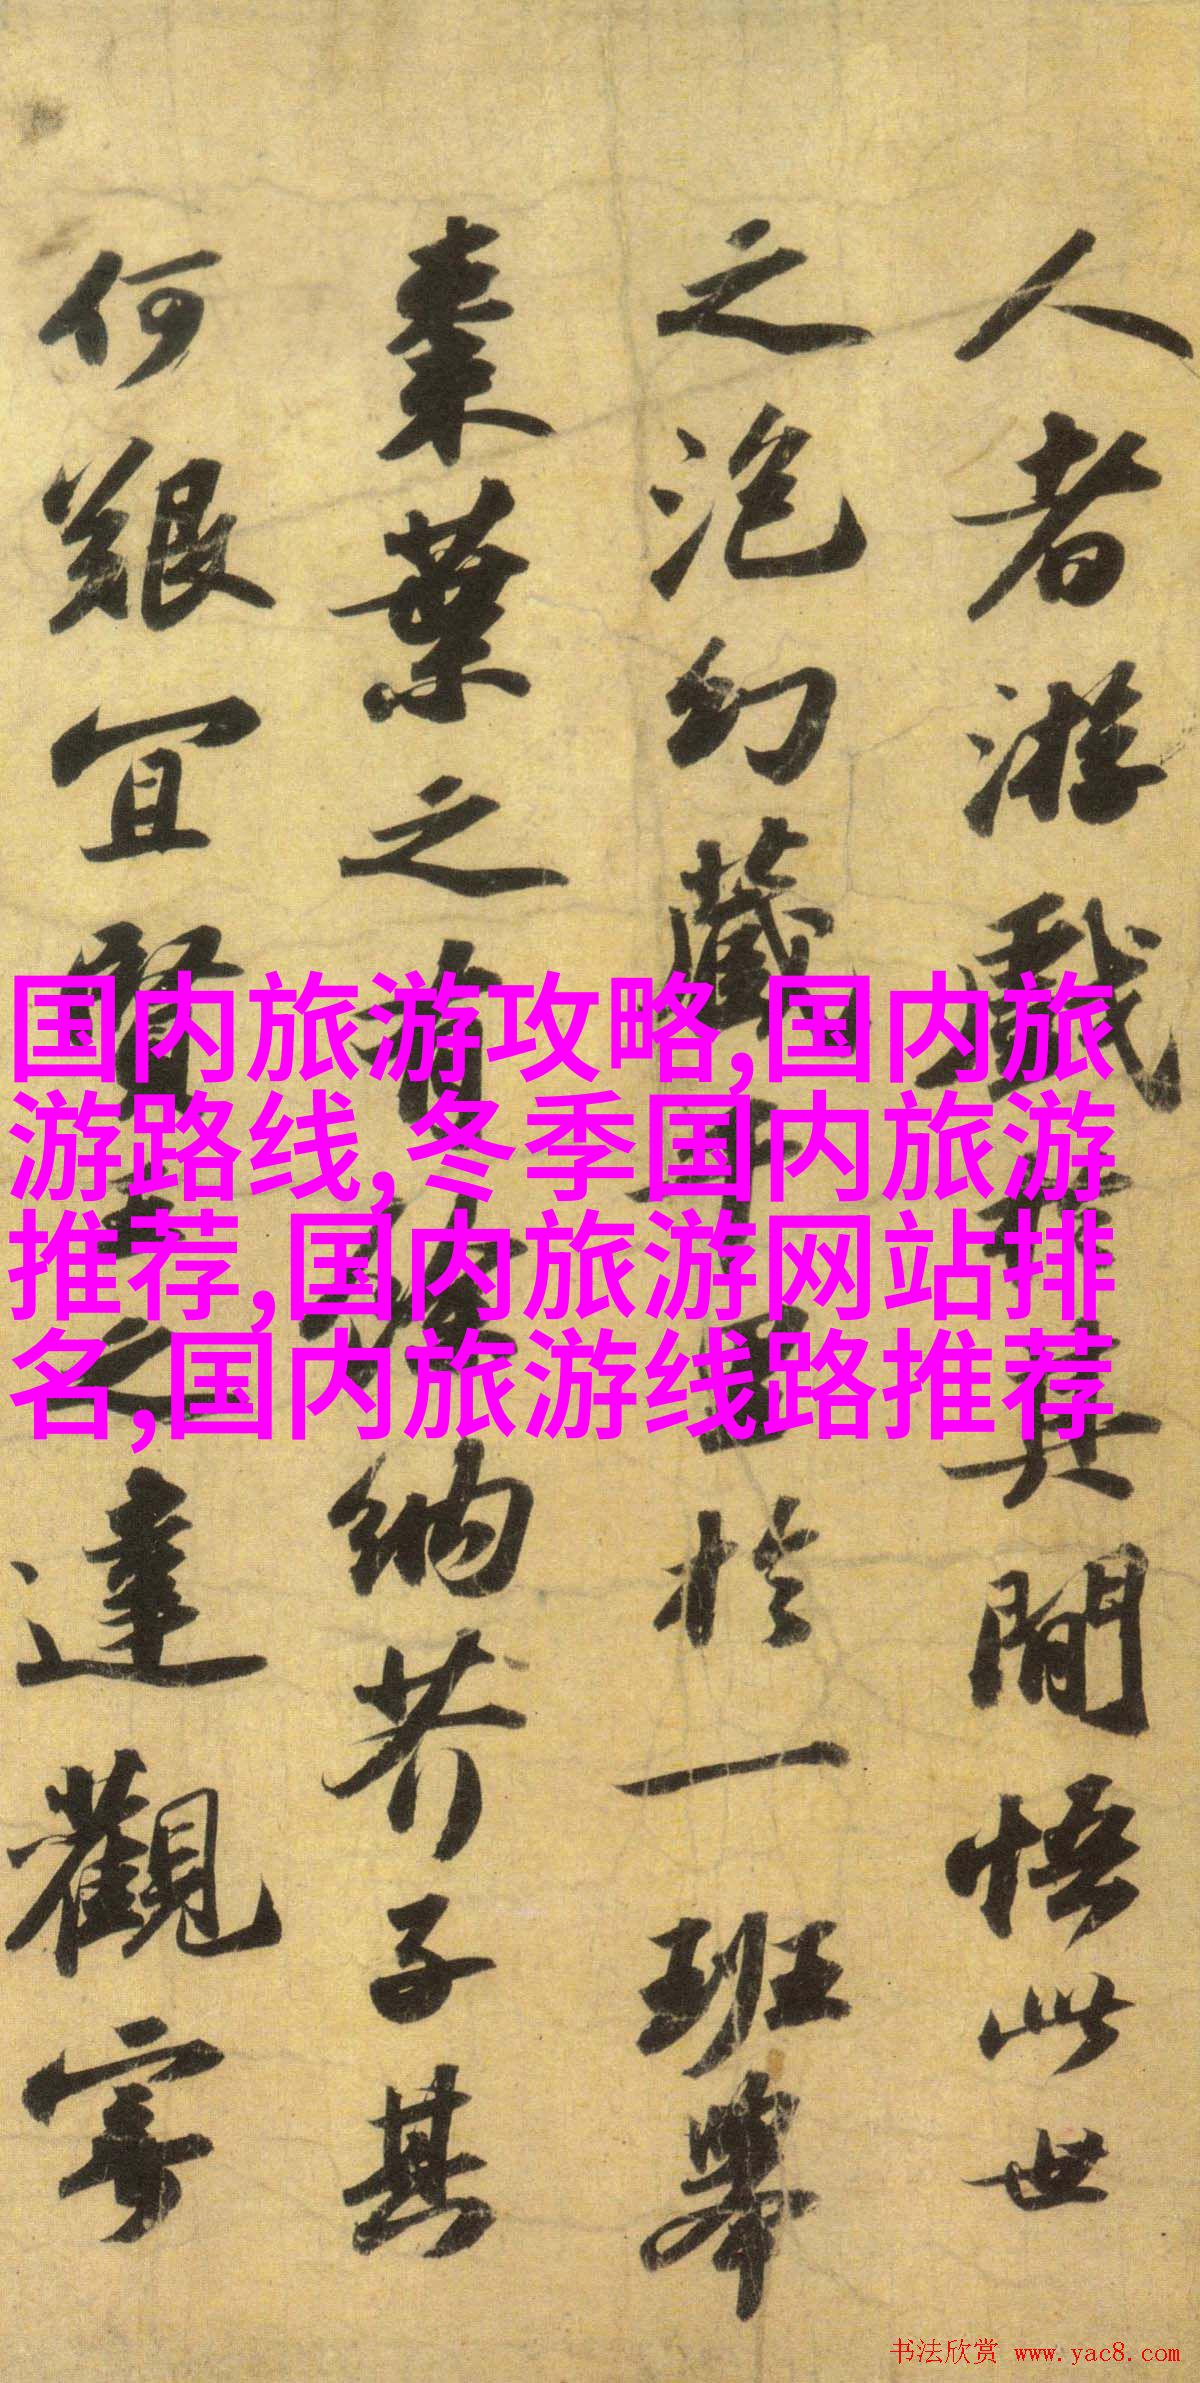 人者游戲於其間悟此世
之泡幻藏千里於一班舉
棗葉之有餘納芥子其
何艱宜賢王之達觀寄
国内旅游攻略,国内旅
游路线,冬季国内旅游
推荐,国内旅游网站排
名,国内旅游线路推荐
书法欣赏 www.yac8.com